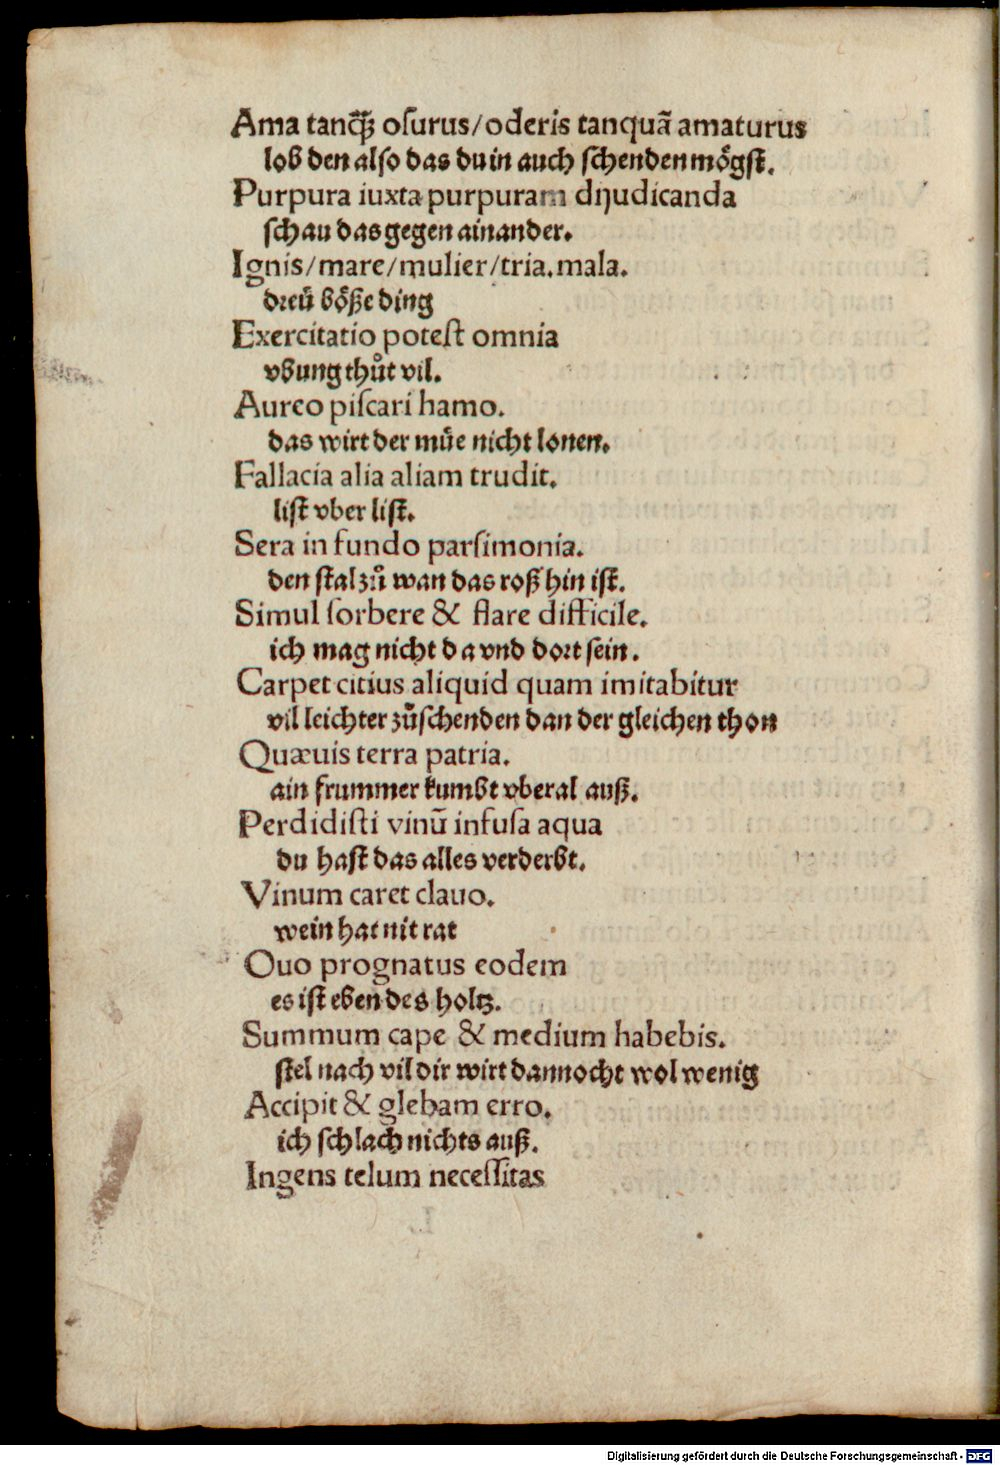 Ama tanq̃ꝫ oſurus/oderis tanquã amaturus
lob den also das du in auch ſchenden mo̊gſt.
Purpura iuxta purpuram dijudicanda
ſchau das gegen ainander.
Ignis/mare/mulier/tria.mala.
dreü bo̊ße ding
Exercitatio poteſt omnia
vbung thůt vil.
Aureo piſcari hamo.
das wirt der müe nicht lonen.
Fallacia alia aliam trudit.
liſt vber liſt.
Sera in fundo parſimonia.
den ſtal zů wan das roß hin iſt.
Simul ſorbere & flare difficile.
ich mag nicht da vnd dort ſein.
Carpet citius aliquid quam imitabitur
vil leichter zůſchenden dan der gleichen thon
Quæuis terra patria.
ain frummer kumbt vberal auß.
Perdidiſti vinū infuſa aqua
du haſt das alles verderbt.
Vinum caret clauo.
wein hat nit rat
Quo prognatus eodem
es iſt eben des holtz.
Summum cape & medium habebis.
ſtel nach vil dir wirt dannocht wol wenig
Accipit & glebam erro.
ich ſchlach nichts auß.
Ingens telum neceſſitas
Digitalisierung gefördert durch die Deutsche Forschungsgemeinschaft - DFG